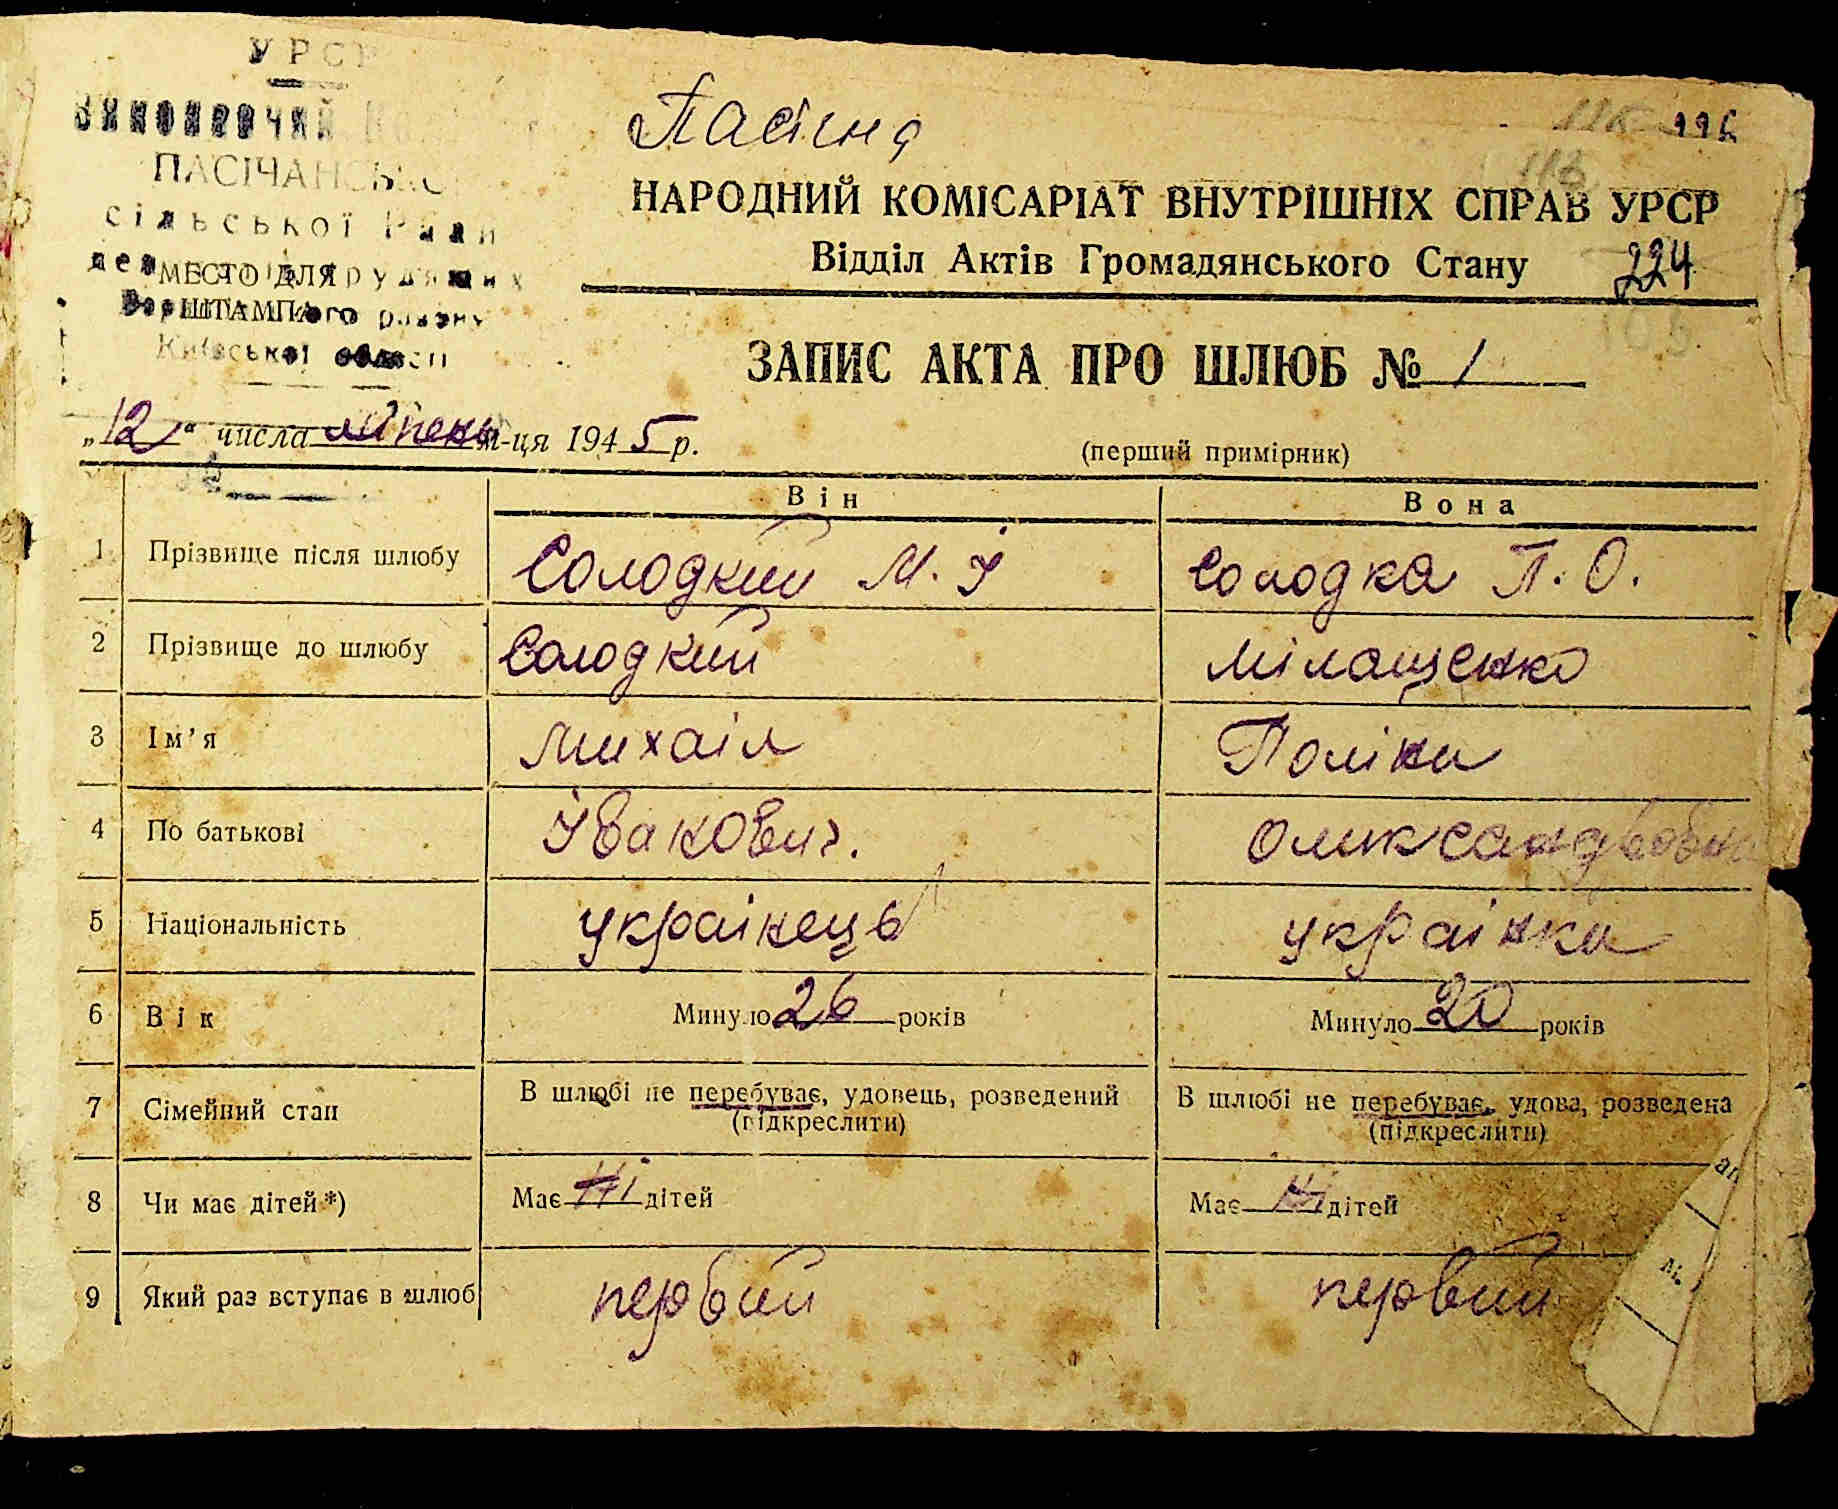 УРСР
Виконавчий
ПАСІЧАНСЬКО
сільської Ради
МЕСТО ДЛЯ
ШТАМПА району
Київської області
Пасічна
116 226
116
НАРОДНИЙ КОМІСАРІАТ ВНУТРІШНІХ СПРАВ УРСР
Відділ Актів Громадянського Стану 224
ЗАПИС АКТА ПРО ШЛЮБ № 1
„12“ числа ліпень м-ця 1945 р.
(перший примірник)
Він Вона
1 Прізвище після шлюбу Солодкий М. І Солодка П. О.
2 Прізвище до шлюбу Солодкий Мілащенко
3 Ім’я Михаіл Поліна
4 По батькові Іванович. Олиександровна
5 Національність украінець украінка
6 Вік Минуло 26 років Минуло 20 років
7 Сімейний стан В шлюбі не перебуває, удовець, розведений (підкреслити) В шлюбі не перебуває, удова, розведена (підкреслити)
8 Чи має дітей*) Має Ні дітей Має Ні дітей
9 Який раз вступає в шлюб первий первий